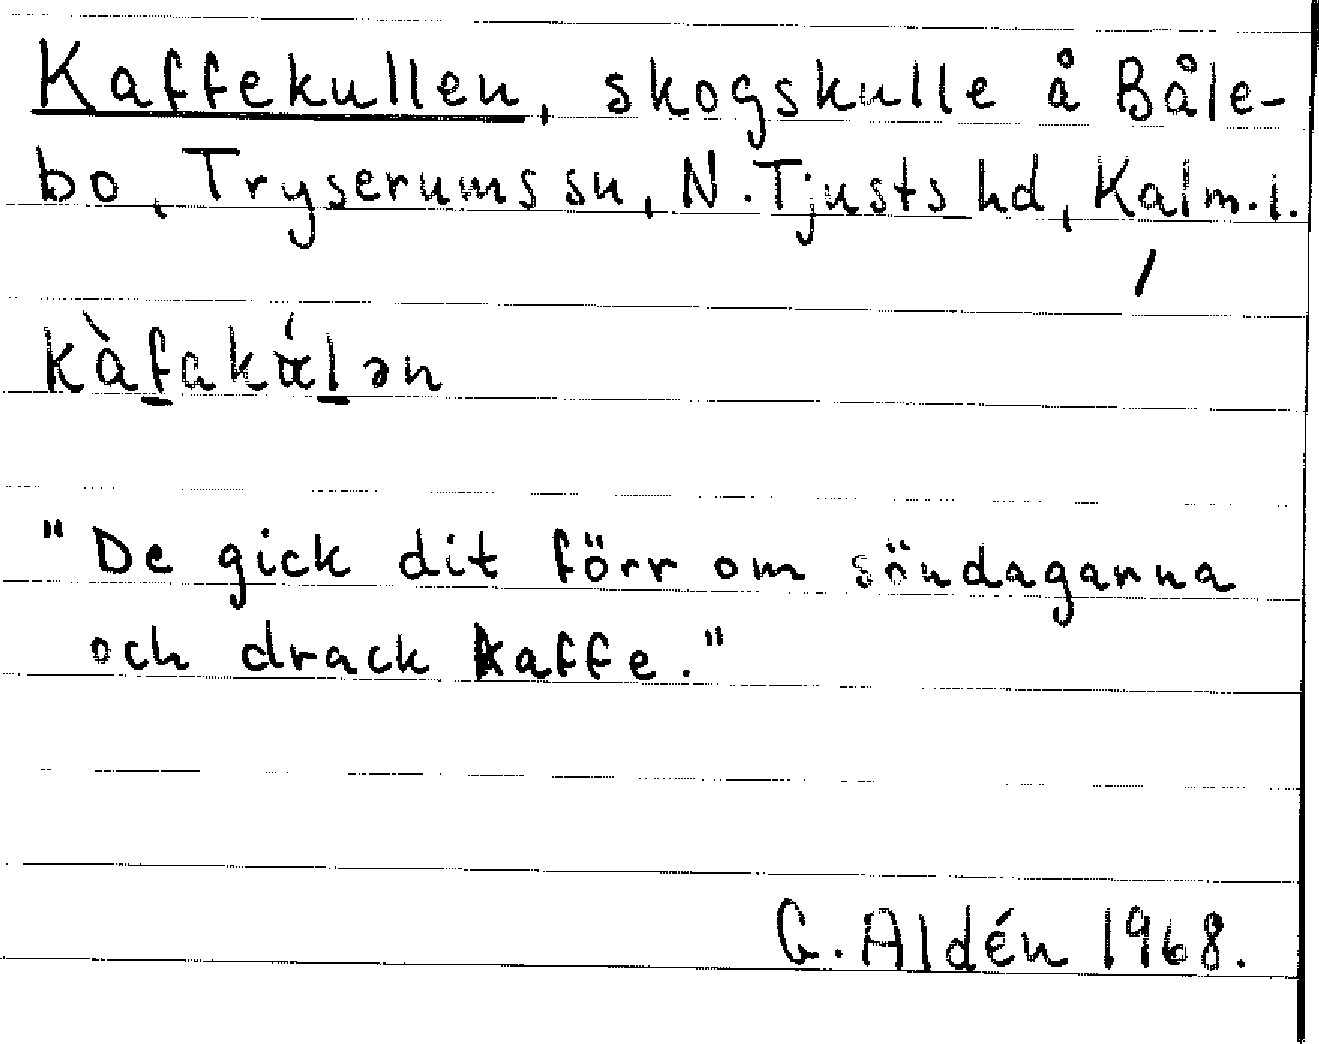 Kaffekullen, skogskulle å Båle-
bo, Tryserums sn, N. Tjusts hd, Kalm. l.
kàfakálən
"De gick dit förr om söndagarna
och drack kaffe."
G. Aldén 1968.